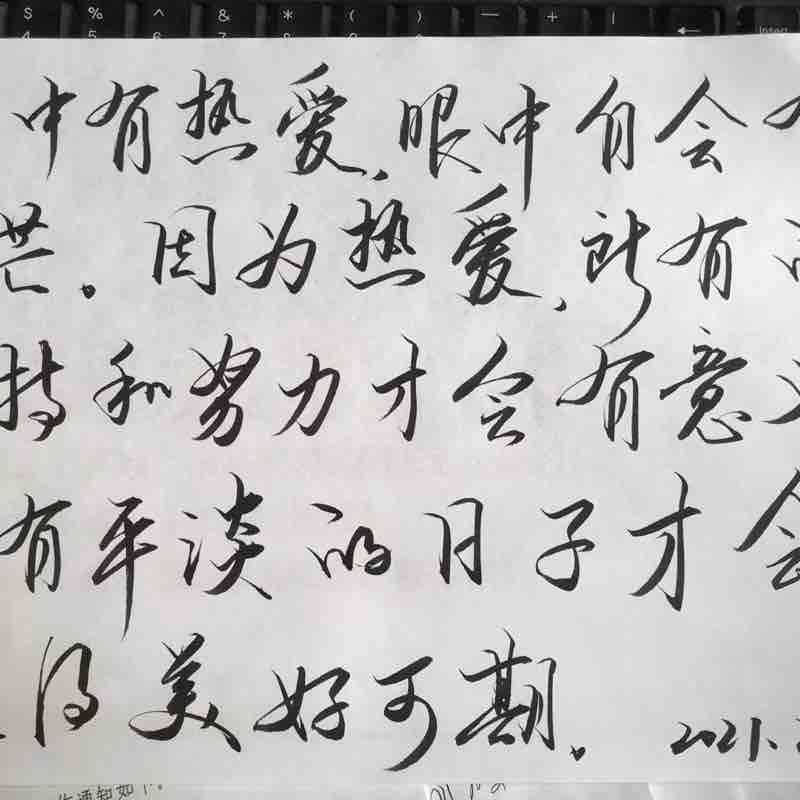 $ % ^ & * ( ) — + | ←
4 5 6 7
中有热爱,眼中自会有
芒。因为热爱,所有
持和努力才会有意义
有平淡的日子才会
得美好可期。
2021.
作通知如下: